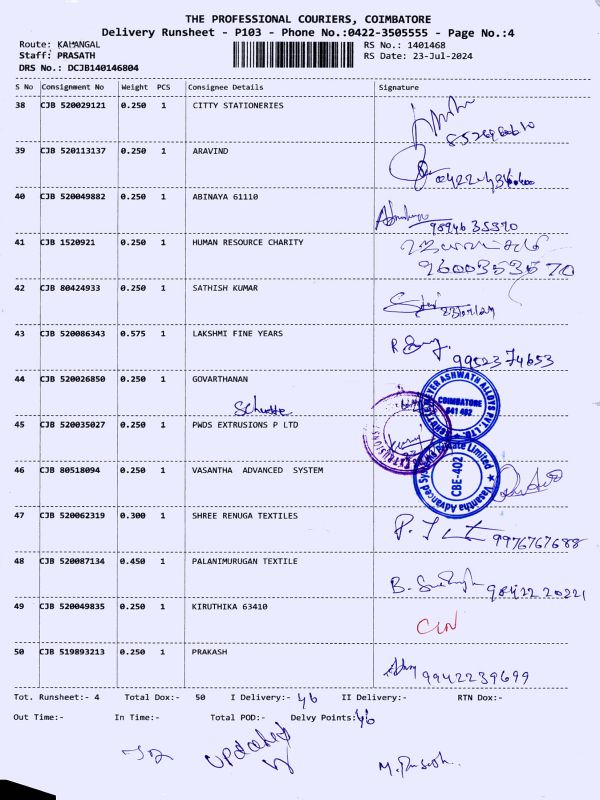 THE PROFESSIONAL COURIERS, COIMBATORE
Delivery Runsheet - P103 - Phone No.:0422-3505555 - Page No.:4
Route: KALANGAL
RS No.: 1401468
Staff: PRASATH
RS Date: 23-Jul-2024
DRS No.: DCJB140146804
S No Consignment No Weight PCS Consignee Details Signature
38 CJB 520029121 0.250 1 CITTY STATIONERIES
39 CJB 520113137 0.250 1 ARAVIND
40 CJB 520049882 0.250 1 ABINAYA 61110
9894635370
41 CJB 1520921 0.250 1 HUMAN RESOURCE CHARITY
9600353570
42 CJB 80424933 0.250 1 SATHISH KUMAR
43 CJB 520086343 0.575 1 LAKSHMI FINE YEARS
9952374653
44 CJB 520026850 0.250 1 GOVARTHANAN
COIMBATORE
641 402
45 CJB 520035027 0.250 1 PWDS EXTRUSIONS P LTD
46 CJB 80518094 0.250 1 VASANTHA ADVANCED SYSTEM
Vasantha Advanced Systems Private Limited
CBE-402
47 CJB 520062319 0.300 1 SHREE RENUGA TEXTILES
9976767688
48 CJB 520087134 0.450 1 PALANIMURUGAN TEXTILE
9842220221
49 CJB 520049835 0.250 1 KIRUTHIKA 63410
50 CJB 519893213 0.250 1 PRAKASH
9942239699
Tot. Runsheet:- 4 Total Dox:- 50 I Delivery:- 46 II Delivery:- RTN Dox:-
Out Time:- In Time:- Total POD:- Delvy Points:46
updated